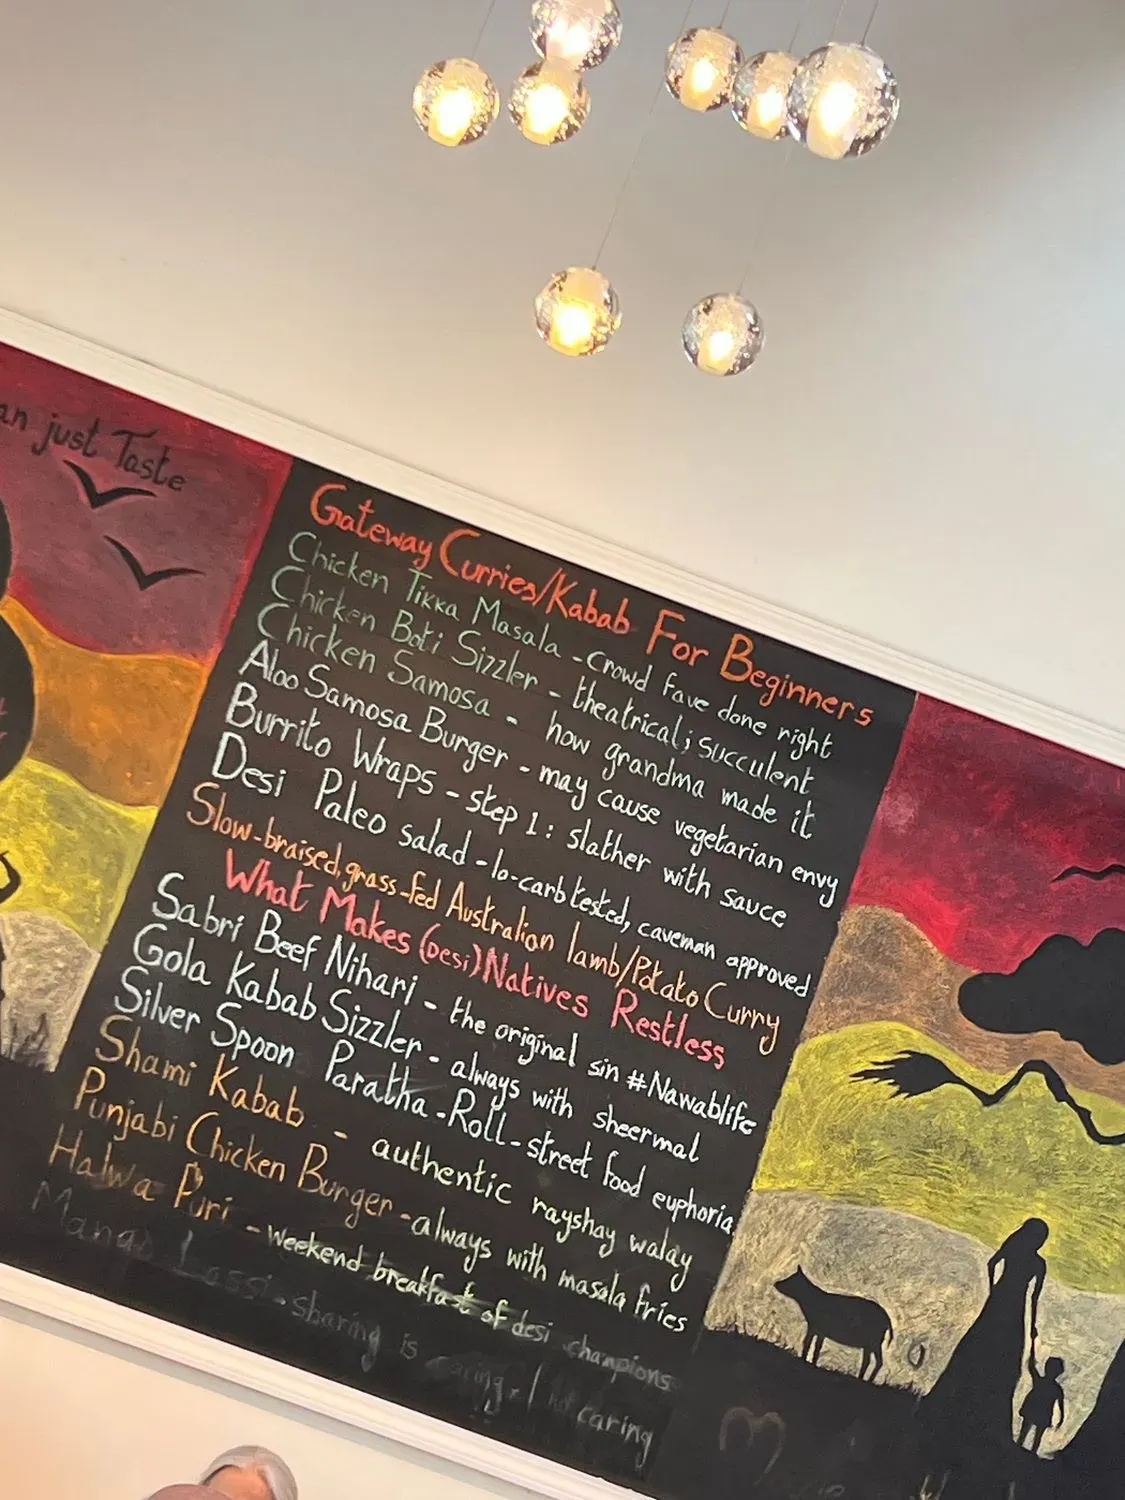 an just Taste
Gateway Curries/Kabab For Beginners
Chicken Tikka Masala - crowd fave done right
Chicken Boti Sizzler - theatrical; succulent
Chicken Samosa - how grandma made it
Aloo Samosa Burger - may cause vegetarian envy
Burrito Wraps - step 1: slather with sauce
Desi Paleo salad - lo-carb tested, caveman approved
Slow-braised, grass-fed Australian lamb/Potato Curry
What Makes (Desi) Natives Restless
Sabri Beef Nihari - the original sin #Nawablife
Gola Kabab Sizzler - always with sheermal
Silver Spoon Paratha-Roll - street food euphoria
Shami Kabab - authentic rayshay walay
Punjabi Chicken Burger - always with masala fries
Halwa Puri - weekend breakfast of desi champions
Mango Lassi - sharing is caring. I not caring